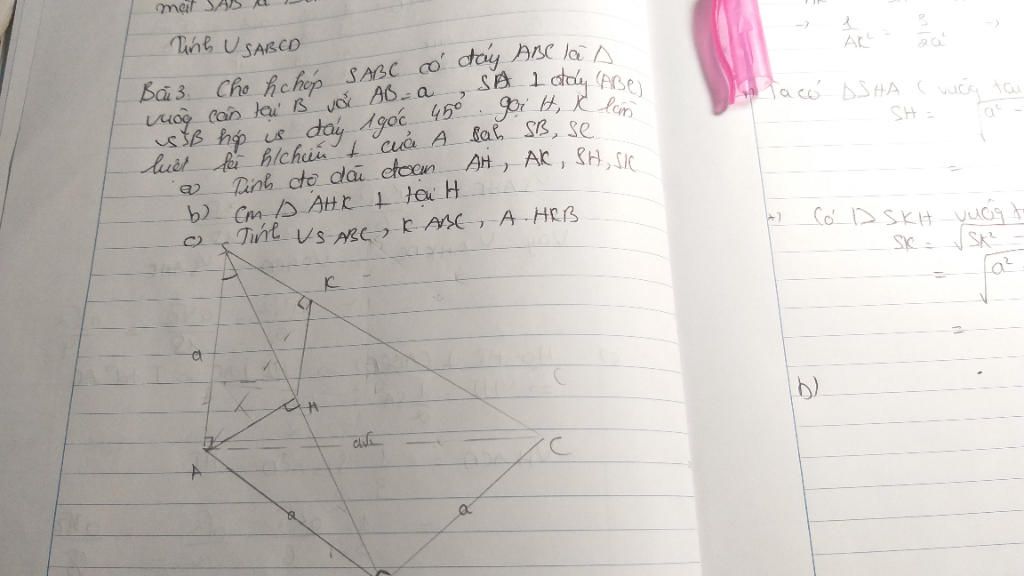 Tính VSABCD
Bài 3. Cho hchóp SABC có đáy ABC là Δ
vuôg cân tại B với AB = a, SA ⊥ đáy (ABC)
SB hợp vs đáy 1 góc 45°. gọi H, K lần
lượt là h/chiếu ⊥ của A SB, SC
a) Tính độ dài đoạn AH, AK, SH, SK
b) Cm Δ AHK ⊥ tại H
c) Tính VS ABC, K ABC, A.HKB
S
K
a
H
A
C
a
a
→ 1/AK² = 3/2a² →
Ta có ΔSHA ( vuôg tại
SH = √a² -
=
Có Δ SKH vuôg t
SK = √SK² -
= √a² -
=
b)